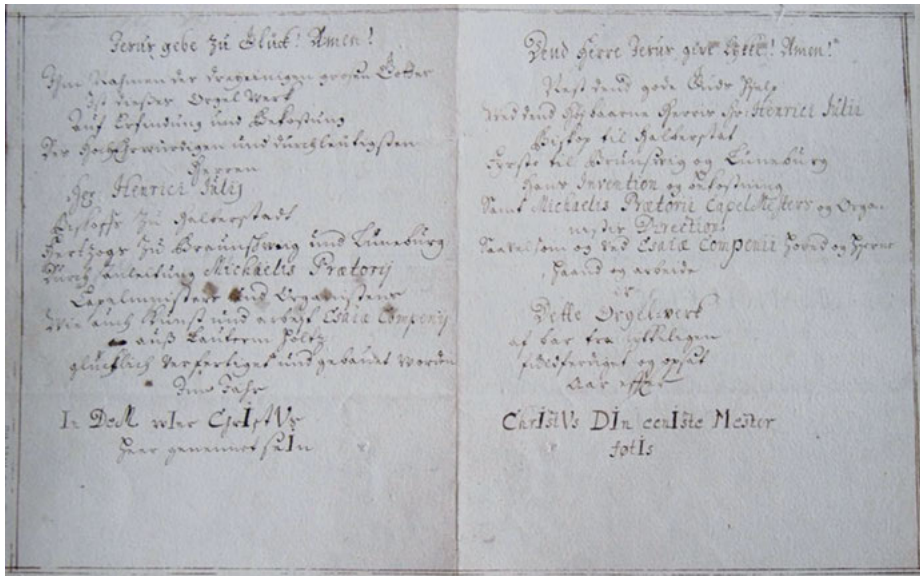 Jesus gebe zu Glück! Amen!
Ihm Nahmen der dreyeinigen grosen Gottes
Ist dieses Orgel Werk
Auf Erfindung und Bekostung
Des Hochehrwürdigen und durchleutigsten
Herren
Hr. Henrici Julij
Bischoffs zu Halberstadt
Hertzogs zu Braunschweig und Lüneburg
Durch anleitung Michaelis Prætorij
Capelmeisters und Organisten
Wie auch Kunst und arbeyt Esaiæ Compenij
auß Lauterm Holtz
glücklich verfertiget und gebauet worden
Im Jahr
In DeM wIer ChrIstVs
Herr genennet seIn
Dend Herre Jesus give Lykke! Amen!
Næst dend gode Guds Hielp
Ved dend Høybaarne Herris Hr: Henrici Julii
Biskop til Halberstat
Første til Brunsvig og Lüneburg
Hans Invention og bekostning
Samt Michaelis Prætorii CapelMesters og Orga-
nistis Direction
Saavelsom og ved Esaiæ Compenii Hoved og Hierne
Haand og arbeide
er
Dette Orgelverk
af bar træ lykkeligen
ferdiget og opsat
Aar efter
ChrIstVs DIn eenIste Mester
føtIs